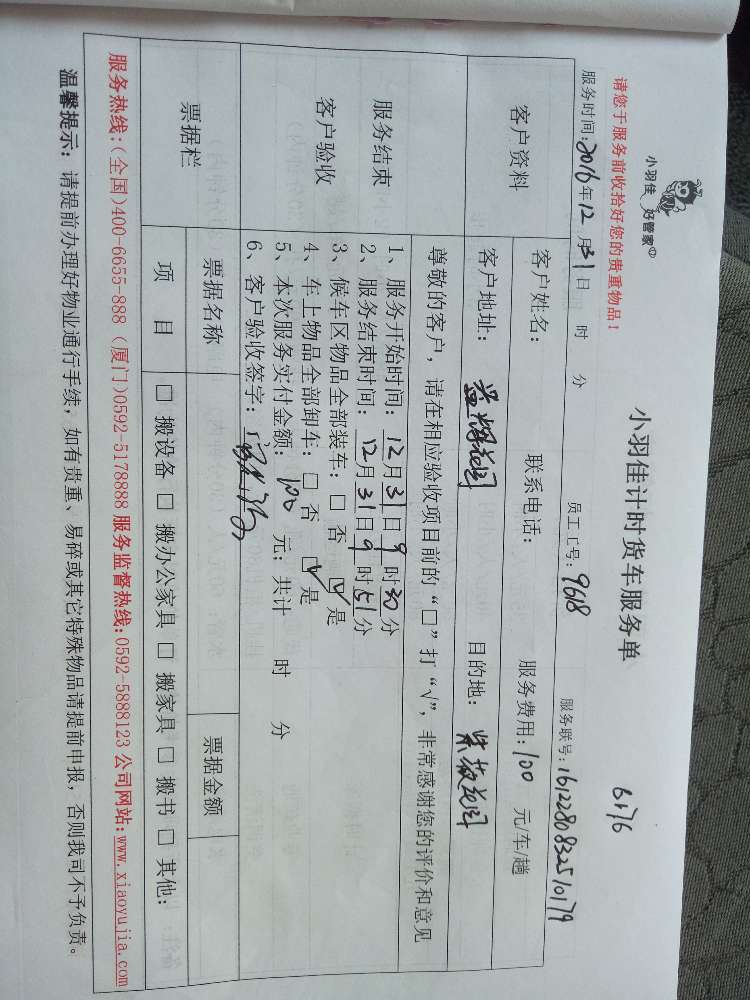 小羽佳 好管家
请您于服务前收拾好您的贵重物品！
小羽佳计时货车服务单
6176
服务时间：2016年12月31日 时 分 员工工号：9618 服务联号：1612280832510179
客户资料
客户姓名： 联系电话： 服务费用：100 元/车/趟
客户地址： 花园 目的地：紫薇花园
尊敬的客户，请在相应验收项目前的“□”打“√”，非常感谢您的评价和意见
服务结束
客户验收
1、服务开始时间：12月31日9时30分
2、服务结束时间：12月31日9时51分
3、候车区物品全部装车：□ 否 ☑ 是
4、车上物品全部卸车：□ 否 ☑ 是
5、本次服务实付金额：100 元；共计 时 分
6、客户验收签字：
票据栏
票据名称 票据金额
项 目 □ 搬设备 □ 搬办公家具 □ 搬家具 □ 搬书 □ 其他：
服务热线：(全国)400-6655-888 (厦门)0592-5178888 服务监督热线:0592-5888123 公司网站:www.xiaoyujia.com
温馨提示：请提前办理好物业通行手续，如有贵重、易碎或其它特殊物品请提前申报，否则我司不予负责。